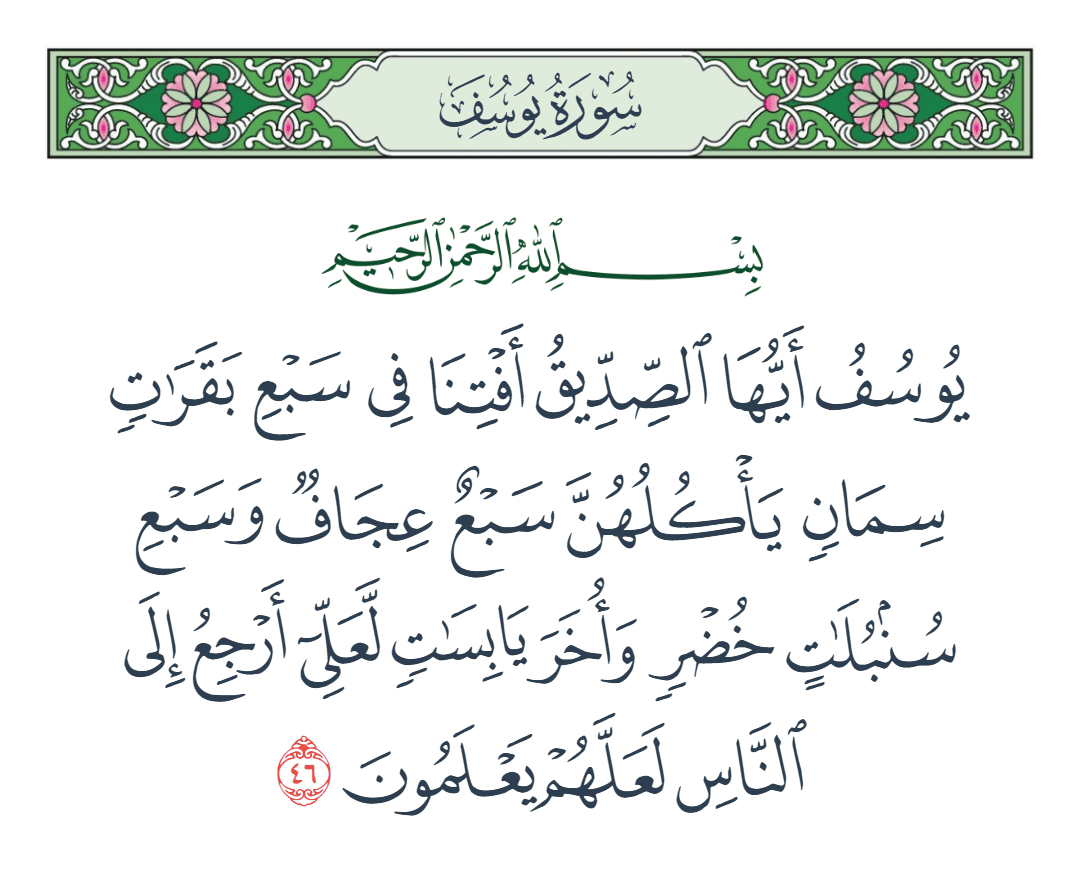 سُورَةُ يُوسُفَ
بِسْمِ ٱللَّهِ ٱلرَّحْمَٰنِ ٱلرَّحِيمِ
يُوسُفُ أَيُّهَا ٱلصِّدِّيقُ أَفْتِنَا فِى سَبْعِ بَقَرَٰتٍ
سِمَانٍ يَأْكُلُهُنَّ سَبْعٌ عِجَافٌ وَسَبْعِ
سُنۢبُلَٰتٍ خُضْرٍ وَأُخَرَ يَابِسَٰتٍ لَّعَلِّىٓ أَرْجِعُ إِلَى
ٱلنَّاسِ لَعَلَّهُمْ يَعْلَمُونَ ٤٦